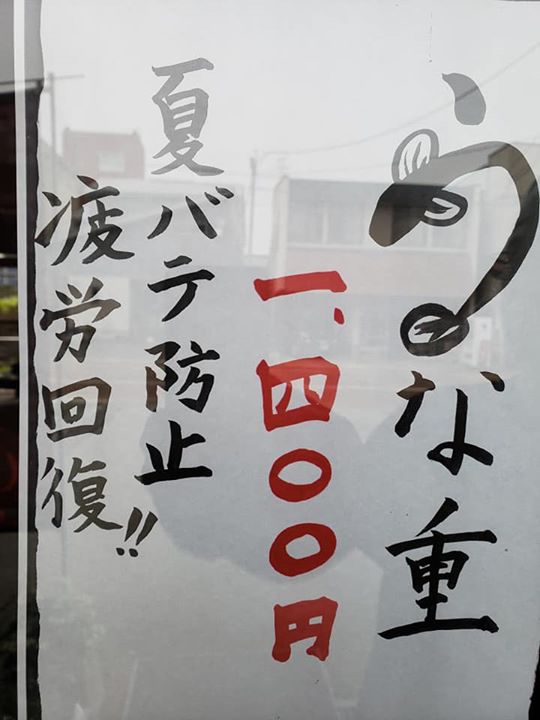 うな重
一、四〇〇円
夏バテ防止
疲労回復!!